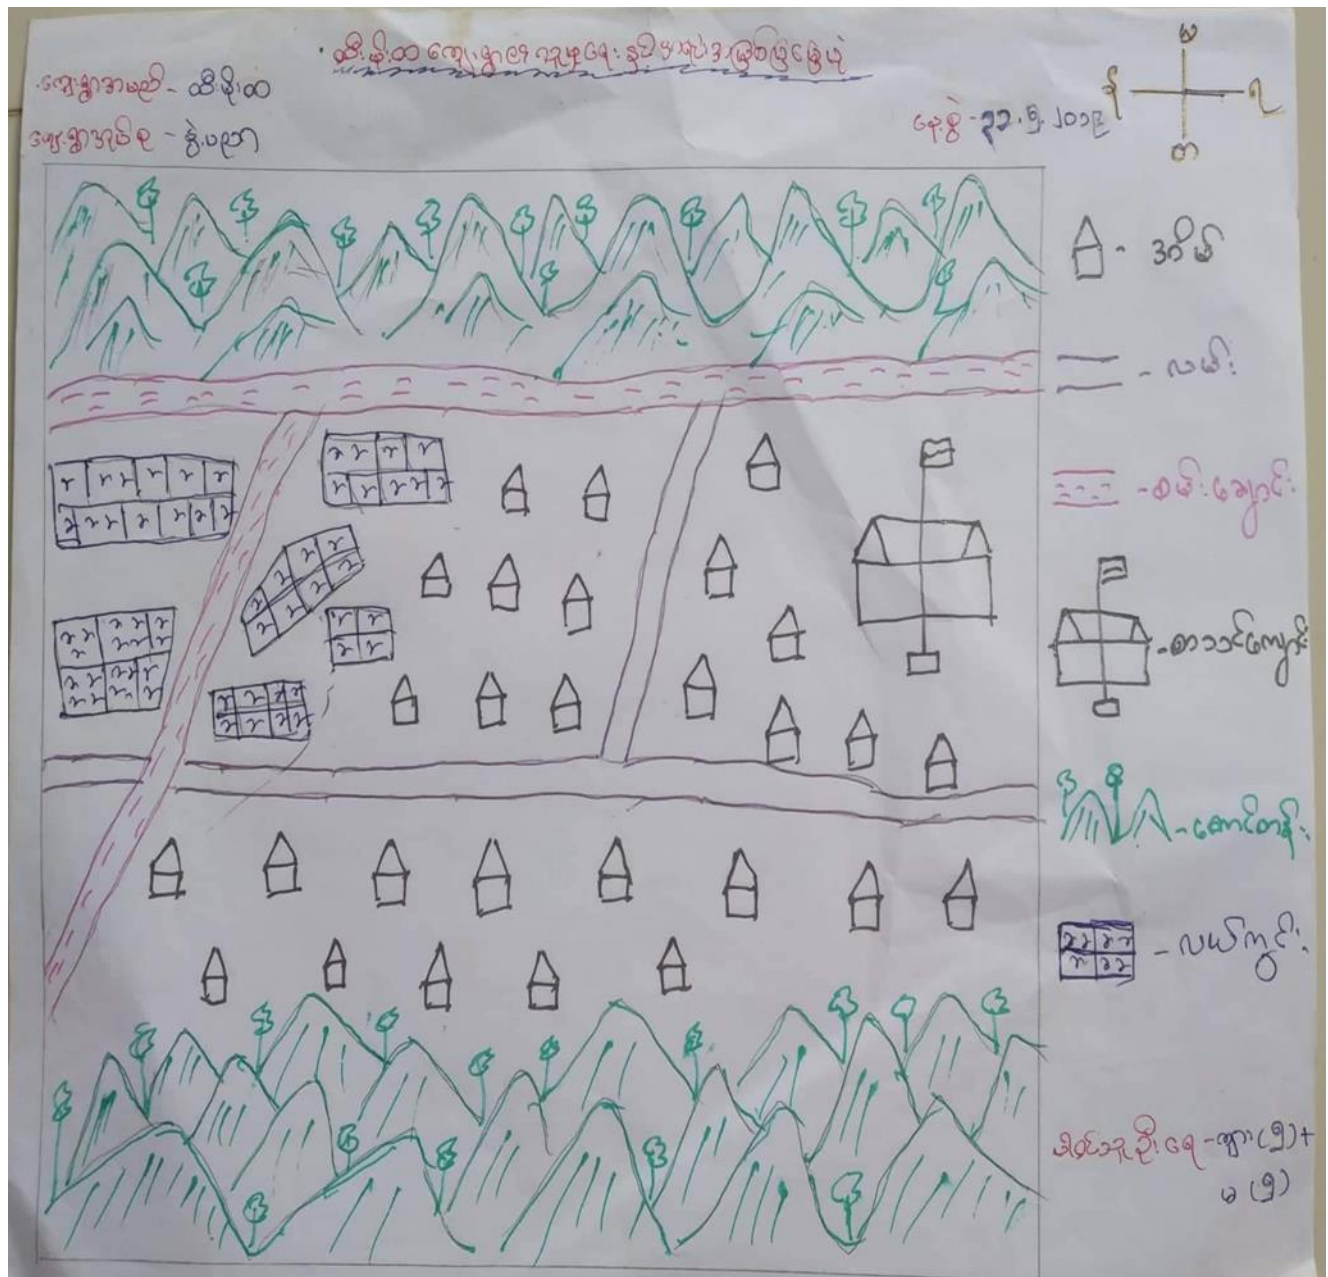 ထီးမိုးထ ကျေးရွာ၏ လူမှုရေးနှင့် အရင်းအမြစ်ပြမြေပုံ
ကျေးရွာအမည် - ထီးမိုးထ
ကျေးရွာအုပ်စု - နွဲ့ပညာ
နေ့စွဲ - ၃၁.၅.၂၀၁၉
မ
န
ရ
တ
အိမ်
လမ်း
စမ်းချောင်း
စာသင်ကျောင်း
တောင်တန်း
လယ်ကွင်း
ပါဝင်သူဦးရေ - ကျား(၅)+
မ (၅)